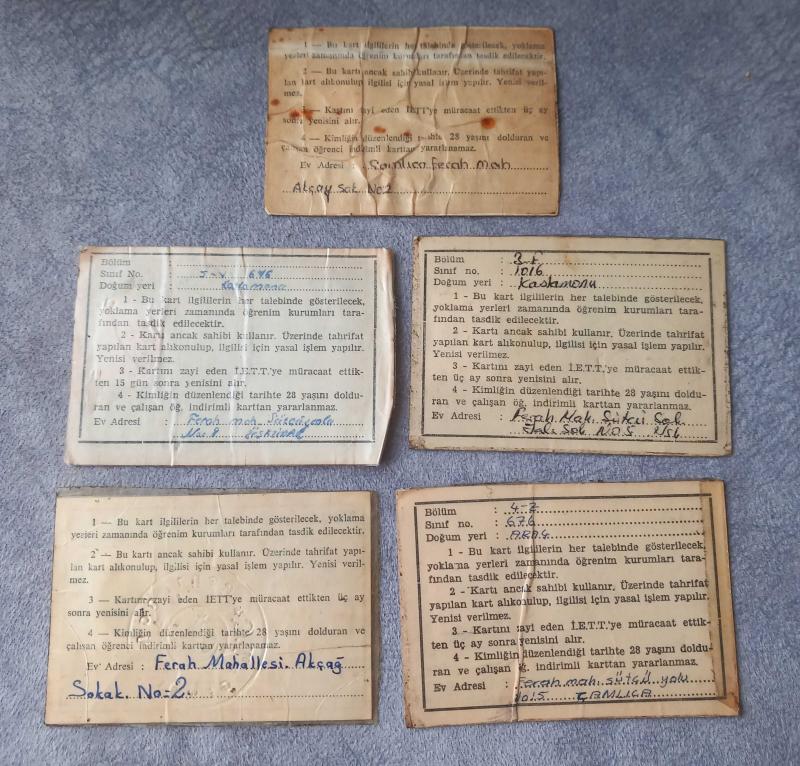 1 — Bu kart ilgililerin her talebinde gösterilecek, yoklama
yerleri zamanında öğrenim kurumları tarafından tasdik edilecektir.
2 — Bu kartı ancak sahibi kullanır. Üzerinde tahrifat yapı-
lan kart alıkonulup ilgilisi için yasal işlem yapılır. Yenisi veril-
mez.
3 — Kartını zayi eden İETT'ye müracaat ettikten üç ay
sonra yenisini alır.
4 — Kimliğin düzenlendiği tarihte 28 yaşını dolduran ve
çalışan öğrenci indirimli karttan yararlanamaz.
Ev Adresi : Çamlıca Ferah Mah
Akçay Sok No 2
Bölüm :
Sınıf No. : 5-V 676
Doğum yeri :
1 - Bu kart ilgililerin her talebinde gösterilecek,
yoklama yerleri zamanında öğrenim kurumları tara-
fından tasdik edilecektir.
2 - Kartı ancak sahibi kullanır. Üzerinde tahrifat
yapılan kart alıkonulup, ilgilisi için yasal işlem yapılır.
Yenisi verilmez.
3 - Kartını zayi eden İ.E.T.T.'ye müracaat ettik-
ten 15 gün sonra yenisini alır.
4 - Kimliğin düzenlendiği tarihte 28 yaşını doldu-
ran ve çalışan öğ. indirimli karttan yararlanmaz.
Ev Adresi : Ferah mah. Sütçüyolu
No: 8 ÜSKÜDAR
Bölüm :
Sınıf no. : 1016
Doğum yeri : Kastamonu
1 - Bu kart ilgililerin her talebinde gösterilecek,
yoklama yerleri zamanında öğrenim kurumları tara-
fından tasdik edilecektir.
2 - Kartı ancak sahibi kullanır. Üzerinde tahrifat
yapılan kart alıkonulup, ilgilisi için yasal işlem yapılır.
Yenisi verilmez.
3 - Kartını zayi eden İ.E.T.T.'ye müracaat ettik-
ten üç ay sonra yenisini alır.
4 - Kimliğin düzenlendiği tarihte 28 yaşını doldu-
ran ve çalışan öğ. indirimli karttan yararlanmaz.
Ev Adresi : Ferah Mah. Sütçü Sok
Sok No 5
1 — Bu kart ilgililerin her talebinde gösterilecek, yoklama
yerleri zamanında öğrenim kurumları tarafından tasdik edilecektir.
2 — Bu kartı ancak sahibi kullanır. Üzerinde tahrifat yapı-
lan kart alıkonulup, ilgilisi için yasal işlem yapılır. Yenisi veril-
mez.
3 — Kartını zayi eden İETT'ye müracaat ettikten üç ay
sonra yenisini alır.
4 — Kimliğin düzenlendiği tarihte 28 yaşını dolduran ve
çalışan öğrenci indirimli karttan yararlanamaz.
Ev Adresi : Ferah Mahallesi. Akçağ
Sokak. No-2.
Bölüm : 4-Z
Sınıf no. : 676
Doğum yeri : ARAÇ
1 - Bu kart ilgililerin her talebinde gösterilecek,
yoklama yerleri zamanında öğrenim kurumları tara-
fından tasdik edilecektir.
2 - Kartı ancak sahibi kullanır. Üzerinde tahrifat
yapılan kart alıkonulup, ilgilisi için yasal işlem yapılır.
Yenisi verilmez.
3 - Kartını zayi eden İ.E.T.T.'ye müracaat ettik-
ten üç ay sonra yenisini alır.
4 - Kimliğin düzenlendiği tarihte 28 yaşını doldu-
ran ve çalışan öğ. indirimli karttan yararlanmaz.
Ev Adresi : Ferah mah. sütçü yolu
No 15 ÇAMLICA